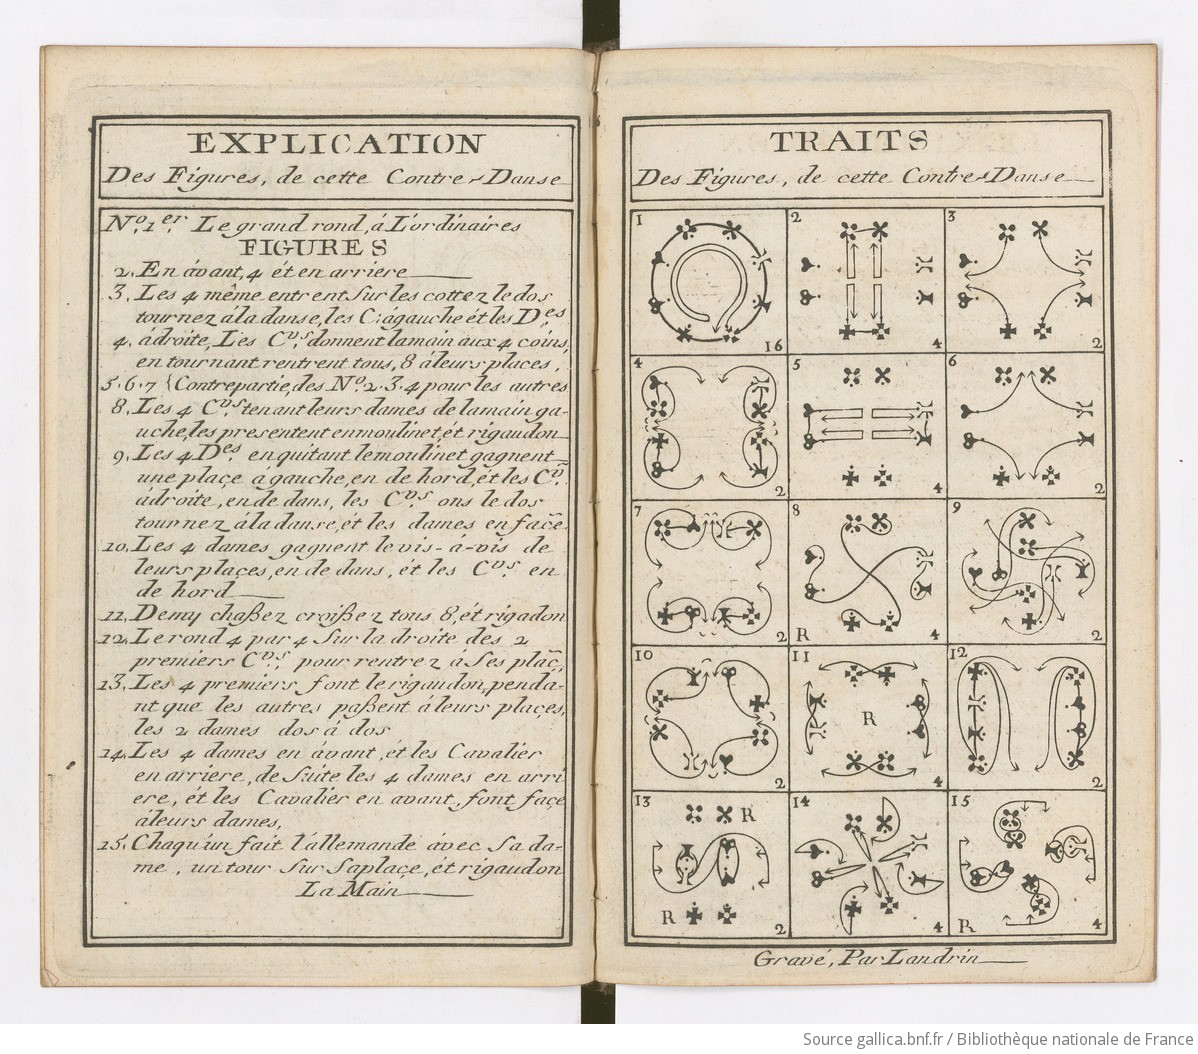 EXPLICATION
Des Figures, de cette Contre-Danse
No. 1er. Le grand rond, á L'ordinaires
FIGURES
2. En ávant, 4 ét en arriere
3. Les 4 même entrent sur les cottez le dos
tournez á la danse, les C: á gauche ét les Des
4. ádroite, Les Crs. donnent la main aux 4 coins,
en tournant rentrent tous, 8 á leurs places,
5. 6. 7 Contrepartie, des No. 2. 3. 4 pour les autres
8. Les 4 Crs. tenant leurs dames de la main ga-
uche, les presentent en moulinet, ét rigaudon
9. Les 4 Des. en quitant le moulinet gagnent
une place á gauche, en de hord, ét les Cr.
ádroite, en de dans, les Crs. ons le dos
tournez á la danse, ét les dames en façe.
10. Les 4 dames gagnent le vis-á-vis de
leurs places, en de dans, ét les Crs. en
de hord
11. Demy chaßez croißez tous 8, ét rigadon
12. Le rond 4 par 4 sur la droite des 2
premiers Crs. pour rentrez á ses plaç,
13. Les 4 premiers font le rigaudon, penda-
nt que les autres paßent á leurs plaçes,
les 2 dames dos á dos
14. Les 4 dames en ávant, ét les Cavalier
en arriere, de suite les 4 dames en arri
ere, ét les Cavalier en avant, font façe
á leurs dames,
15. Chaqu'un fait l'allemande ávec sa da-
me, un tour sur sa plaçe, ét rigaudon
La Main
TRAITS
Des Figures, de cette Contre-Danse
1 16
2 4
3 2
4 2
5 4
6 2
7 2
8 R 4
9 2
10 2
11 R 4
12 2
13 R R 2
14 4
15 R 4
Gravé, Par Landrin
Source gallica.bnf.fr / Bibliothèque nationale de France